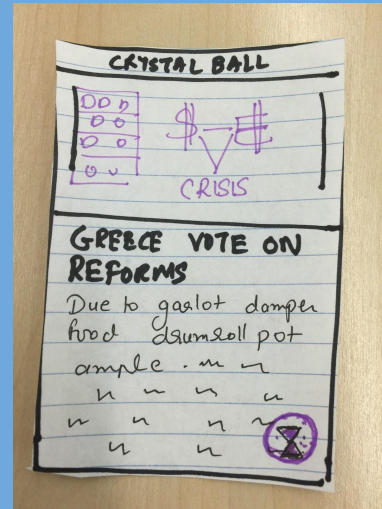 CRYSTAL BALL
$
CRISIS
GREECE VOTE ON
REFORMS
Due to garlot damper
food drumroll pot
ample.